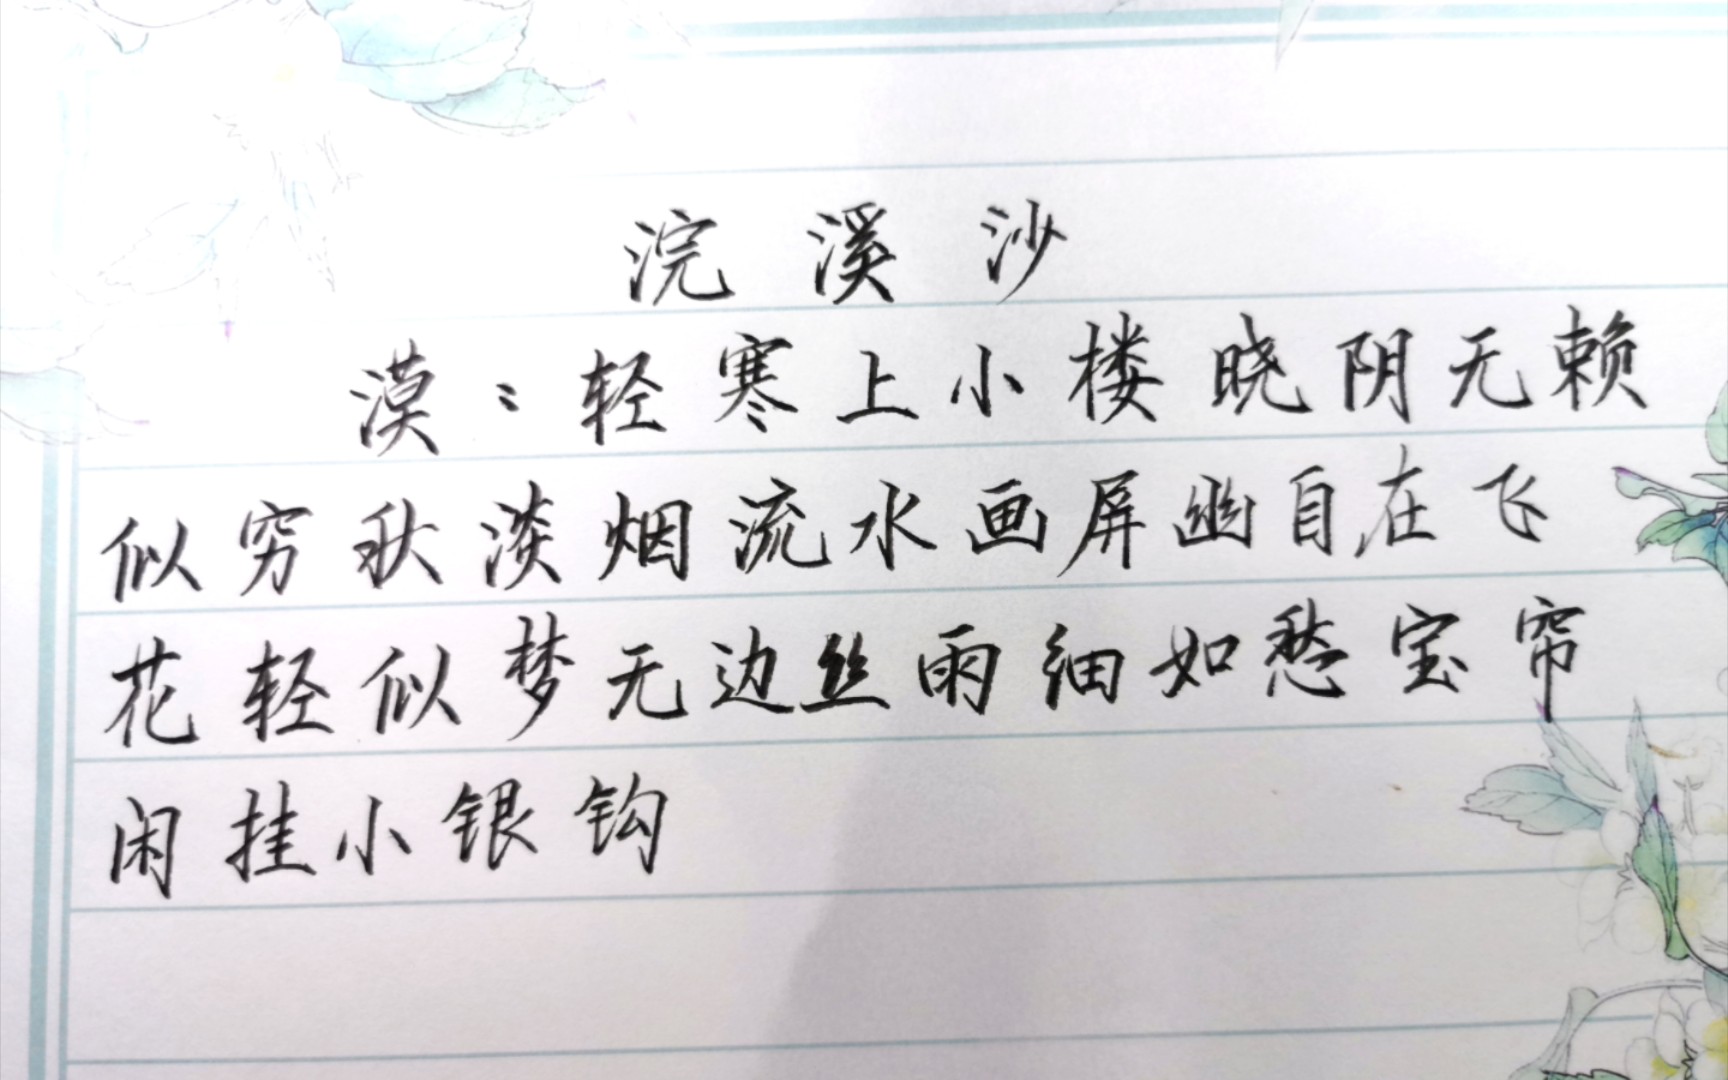 浣溪沙
漠〻轻寒上小楼晓阴无赖
似穷秋淡烟流水画屏幽自在飞
花轻似梦无边丝雨细如愁宝帘
闲挂小银钩